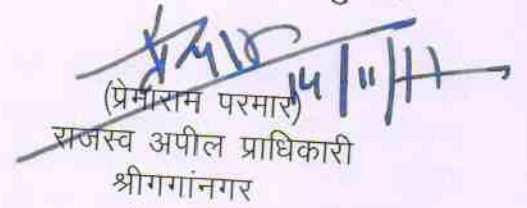 14/11/11
(प्रेमाराम परमार)
राजस्व अपील प्राधिकारी
श्रीगगांनगर